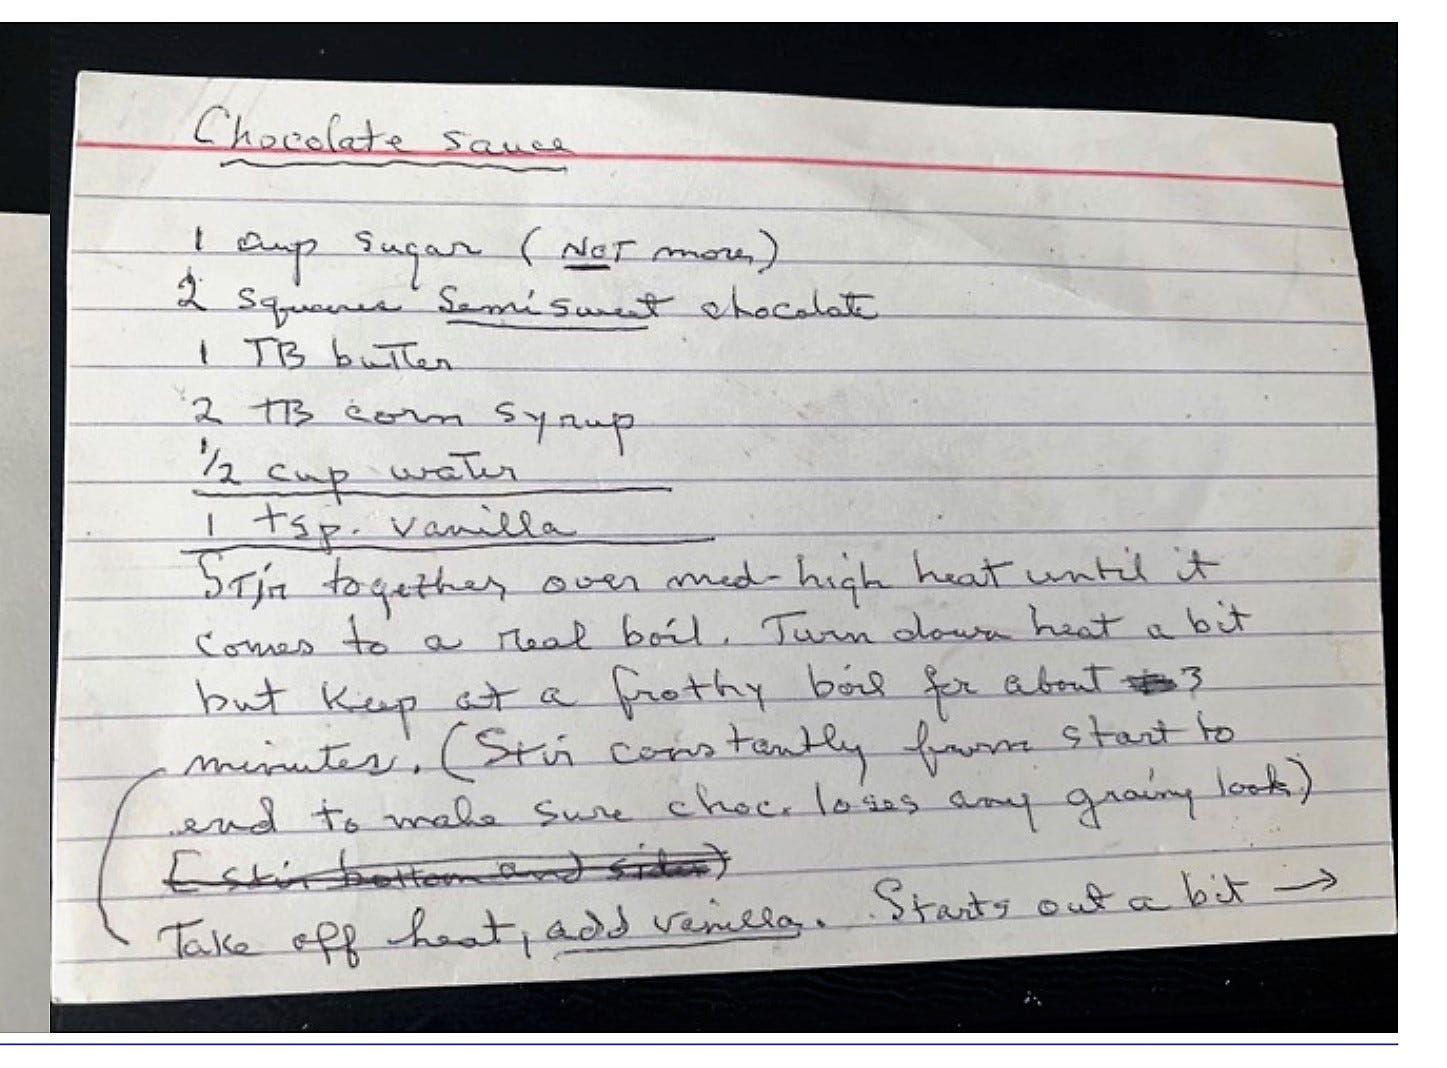 Chocolate sauce
1 cup sugar (NOT more)
2 squares semisweet chocolate
1 TB butter
2 TB corn syrup
1/2 cup water
1 tsp. vanilla
Stir together over med-high heat until it
comes to a real boil. Turn down heat a bit
but keep at a frothy boil for about 3
minutes. (Stir constantly from start to
end to make sure choc. loses any grainy look)
(stir bottom and sides)
Take off heat, add vanilla. Starts out a bit →